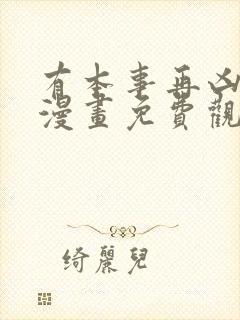 有本事再凶
漫畫免費觀
綺麗兒